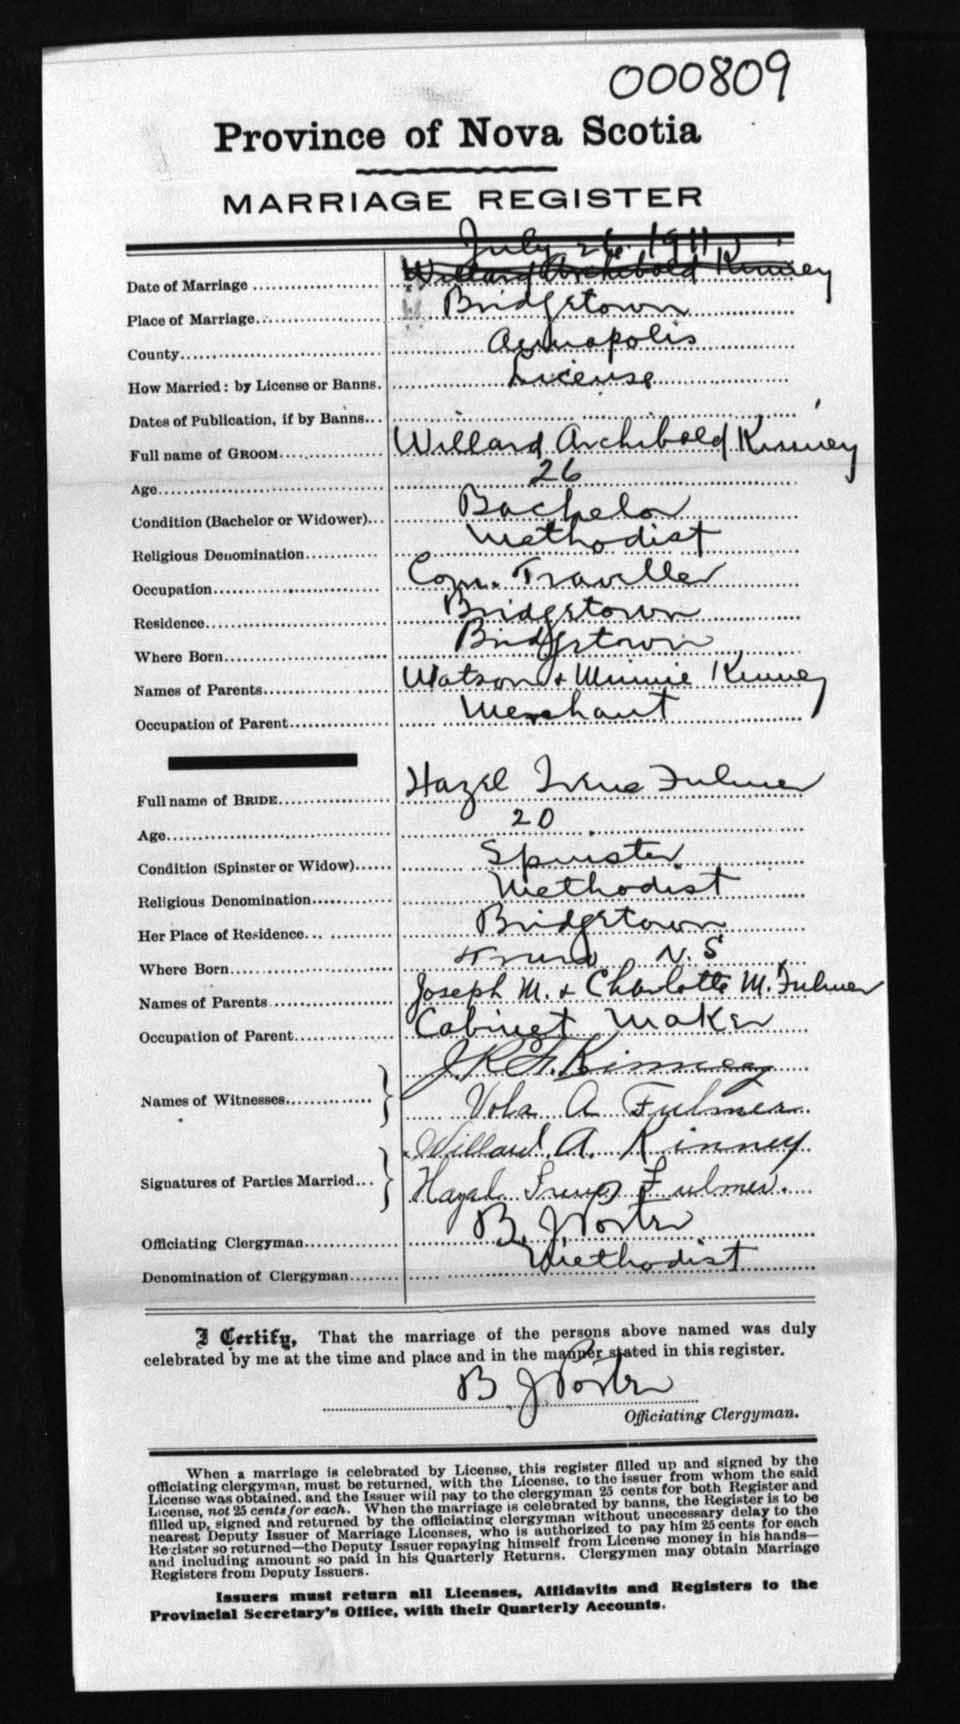 000809
Province of Nova Scotia
MARRIAGE REGISTER
July 26. 1911
Date of Marriage Willard Archibold Kinney
Place of Marriage Bridgetown
County Annapolis
How Married: by License or Banns. License
Dates of Publication, if by Banns
Full name of GROOM Willard Archibold Kinney
Age 26
Condition (Bachelor or Widower) Bachelor
Religious Denomination Methodist
Occupation Com. Traveller
Residence Bridgetown
Where Born Bridgetown
Names of Parents Watson & Minnie Kinney
Occupation of Parent Merchant
Full name of BRIDE Hazel Irene Fulmer
Age 20
Condition (Spinster or Widow) Spinster
Religious Denomination Methodist
Her Place of Residence Bridgetown
Where Born Truro N.S
Names of Parents Joseph M. & Charlotte M. Fulmer
Occupation of Parent Cabinet Maker
J. R. Kinney
Names of Witnesses
Vola A Fulmer
Willard. A. Kinney
Signatures of Parties Married
Hazel Irene Fulmer.
Officiating Clergyman B. J Porter
Denomination of Clergyman Methodist
I Certify, That the marriage of the persons above named was duly
celebrated by me at the time and place and in the manner stated in this register.
B J Porter
Officiating Clergyman.
When a marriage is celebrated by License, this register filled up and signed by the
officiating clergyman, must be returned, with the License, to the issuer from whom the said
License was obtained. and the Issuer will pay to the clergyman 25 cents for both Register and
License, not 25 cents for each. When the marriage is celebrated by banns, the Register is to be
filled up, signed and returned by the officiating clergyman without unecessary delay to the
nearest Deputy Issuer of Marriage Licenses, who is authorized to pay him 25 cents for each
Register so returned—the Deputy Issuer repaying himself from License money in his hands—
and including amount so paid in his Quarterly Returns. Clergymen may obtain Marriage
Registers from Deputy Issuers.
Issuers must return all Licenses, Affidavits and Registers to the
Provincial Secretary's Office, with their Quarterly Accounts.